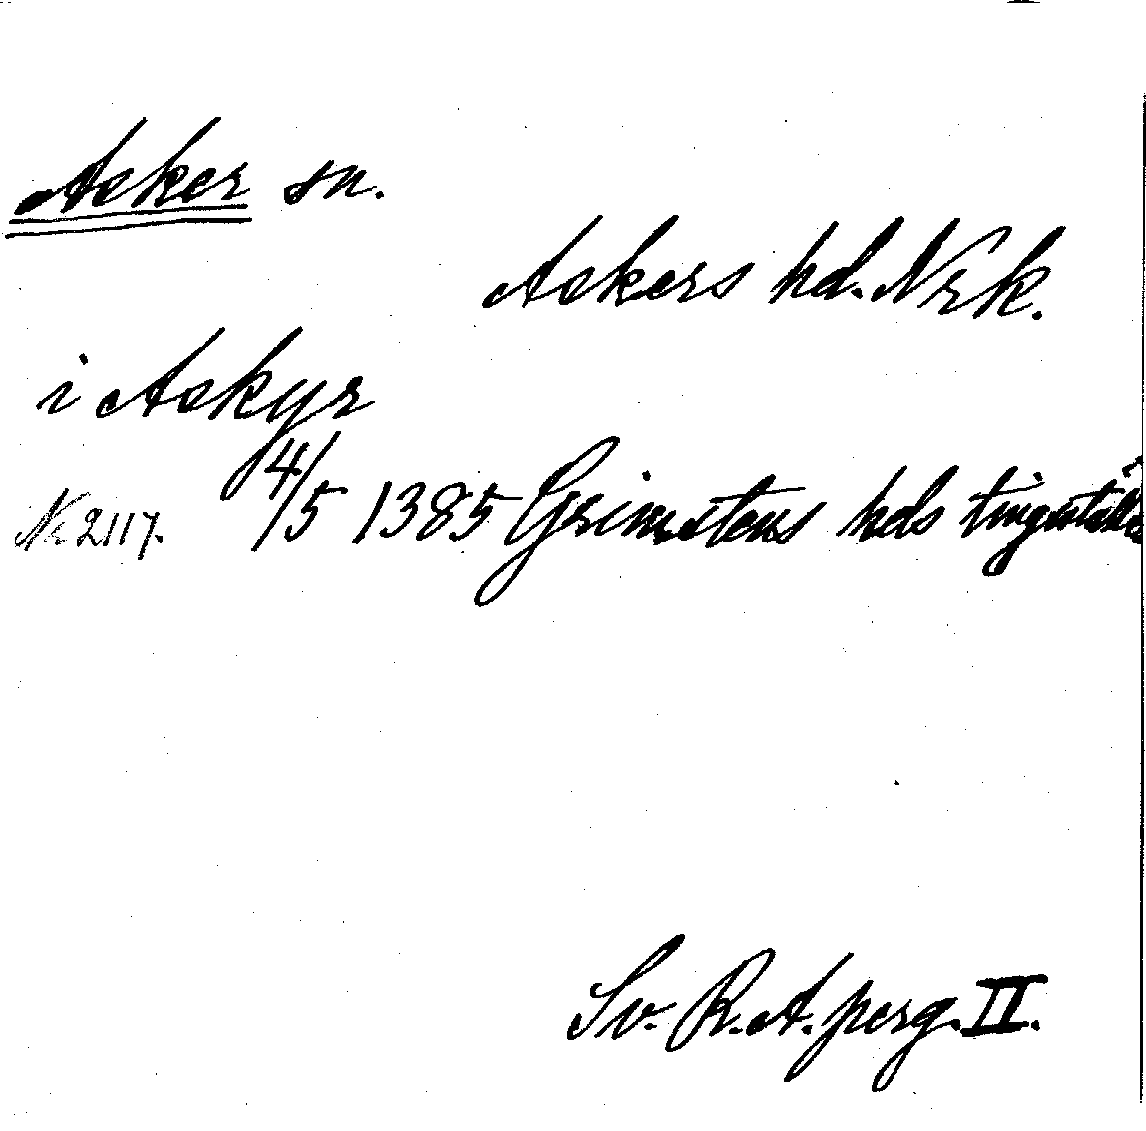 Asker sn.
Askers hd. Nrk.
i Askyr
Nr 2117. 4/5 1385 Grimstens hds tingställe
Sv. R. A. perg. II.